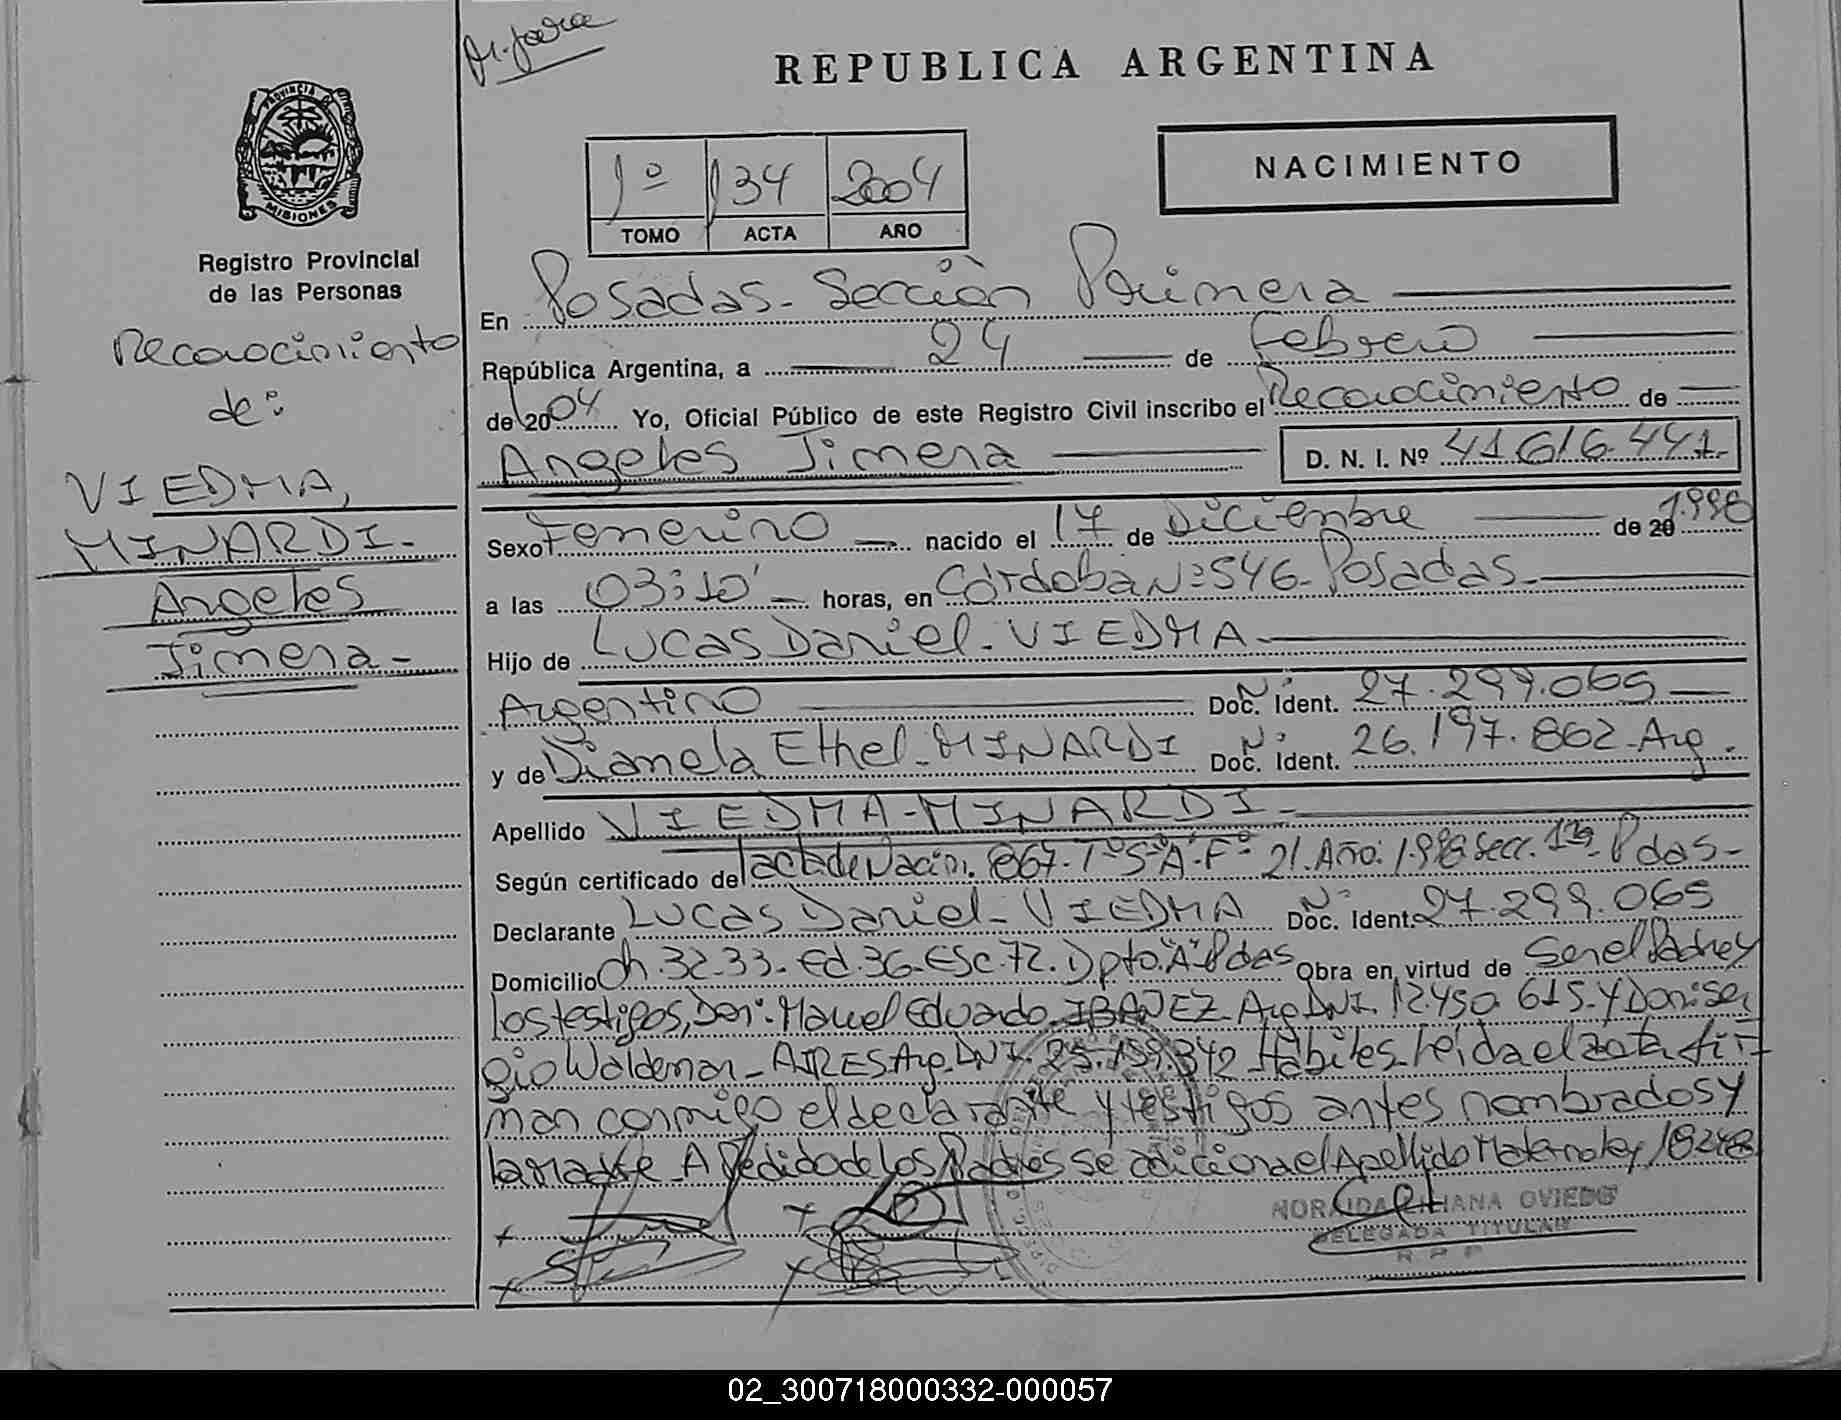 REPUBLICA ARGENTINA
PROVINCIA DE
MISIONES
Registro Provincial
de las Personas
Reconocimiento
de:
VIEDMA,
MINARDI.
Angeles
Jimena-
1º 134 2004
TOMO ACTA AÑO
NACIMIENTO
En Posadas- Sección Primera
República Argentina, a 24 de Febrero
de 2004 Yo, Oficial Público de este Registro Civil inscribo el Reconocimiento de
Angeles Jimena D. N. I. Nº 41.616.441.
Sexo Femenino nacido el 17 de Diciembre de 20 1.998
a las 03:10' horas, en Córdoba Nº 546- Posadas-
Hijo de Lucas Daniel- VIEDMA
Argentino Doc. Ident. Nº 27.299.065
y de Dianela Ethel- MINARDI Doc. Ident. Nº 26.197.862- Arg.
Apellido VIEDMA-MINARDI-
Según certificado de l acta de Nacim. 867- Tº 5º A- Fº 21. Año: 1.998 Secc. 1ra. Pdas-
Declarante Lucas Daniel- VIEDMA Doc. Ident. Nº 27.299.065
Domicilio Ch. 32-33- Ed. 36- Esc. 72. Dpto. "A" Pdas Obra en virtud de Ser el Padre y
los testigos, Don: Manuel Eduardo IBAÑEZ Arg DNI. 12.450.615- y Don: Ser
gio Waldemar- AIRES Arg. DNI- 25.159.342 Hábiles- leída el acta fir-
man conmigo el declarante y testigos antes nombrados y
la madre- A Pedido de los Padres se adiciona el Apellido Materno ley 18248
DELEGADA TITULAR
02_300718000332-000057